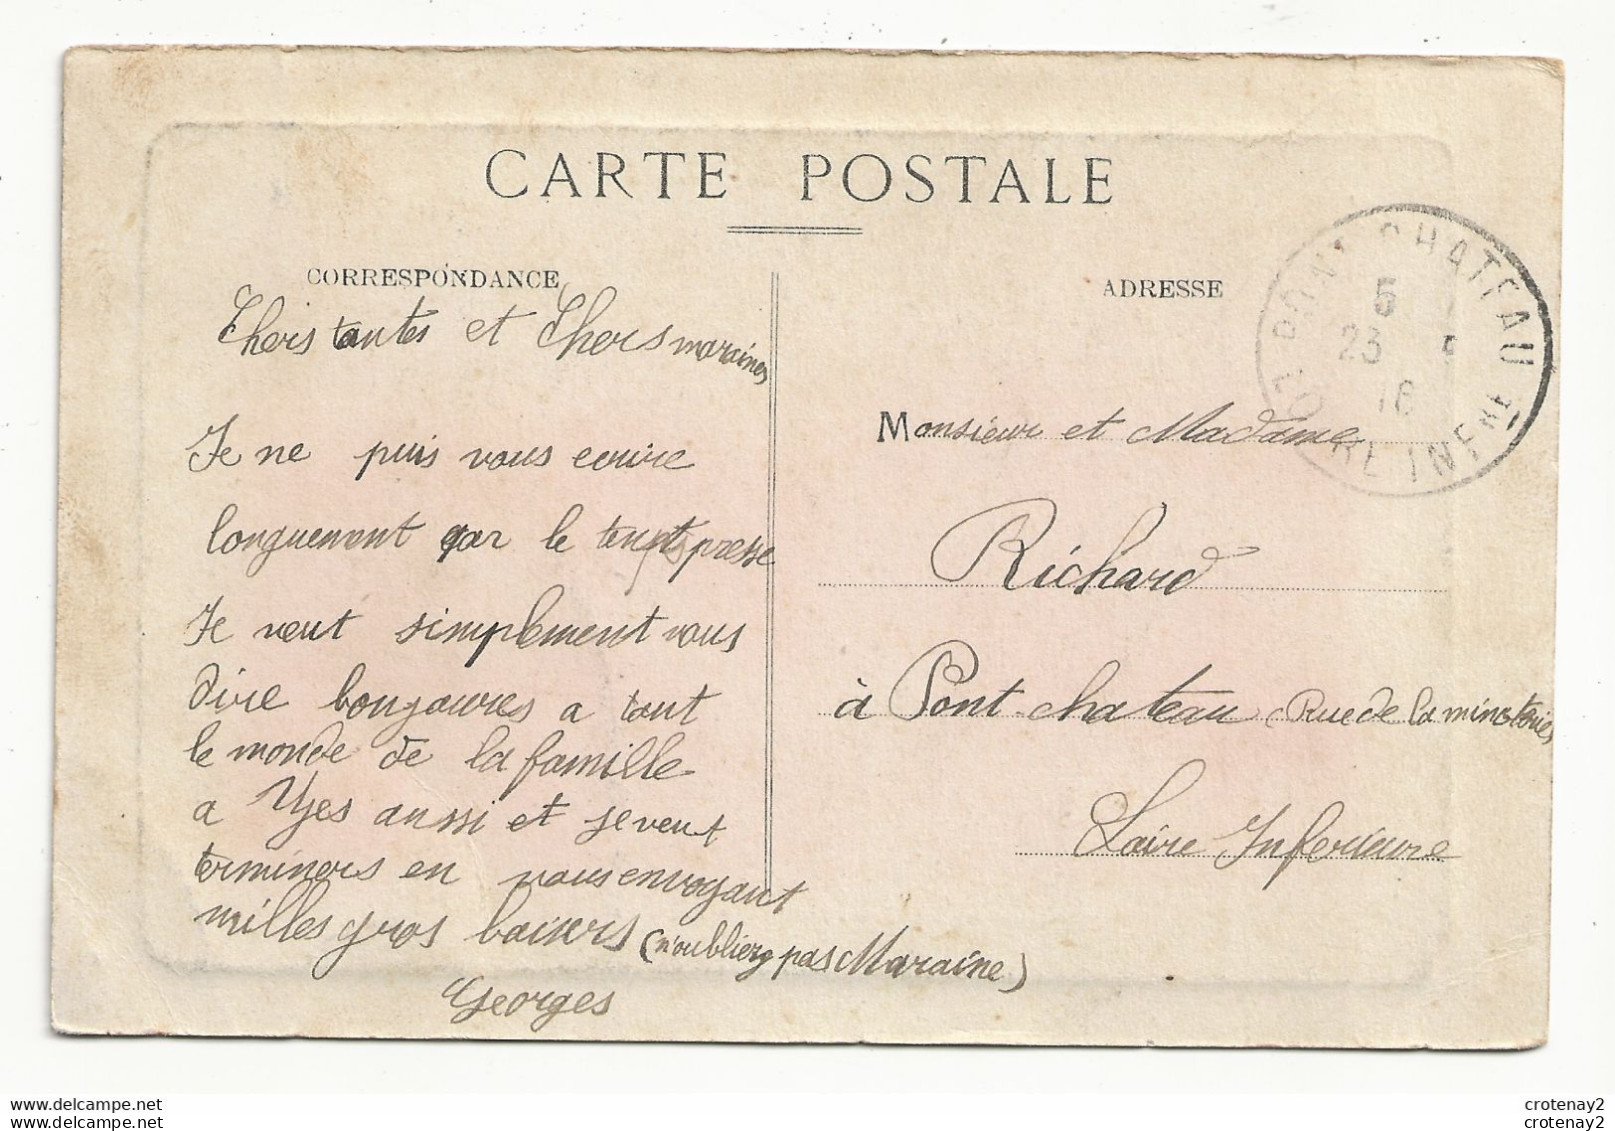 CARTE POSTALE
CORRESPONDANCE
ADRESSE
PONT CHATEAU
5
23 5
16
LOIRE INFRE
Chers tantes et Chers maraines
Je ne puis vous ecrire
longuement car le temps presse
Je veut simplement vous
dire bonjoures a tout
le monde de la famille
a Yjes aussi et je veut
terminers en vous envoyant
milles gros baisers (n'oubliez pas Maraine)
Georges
Monsieur et Madame
Richard
à Pont-chateau (Rue de la minoterie)
Loire Inferieure
www.delcampe.net
www.delcampe.net
crotenay2
crotenay2